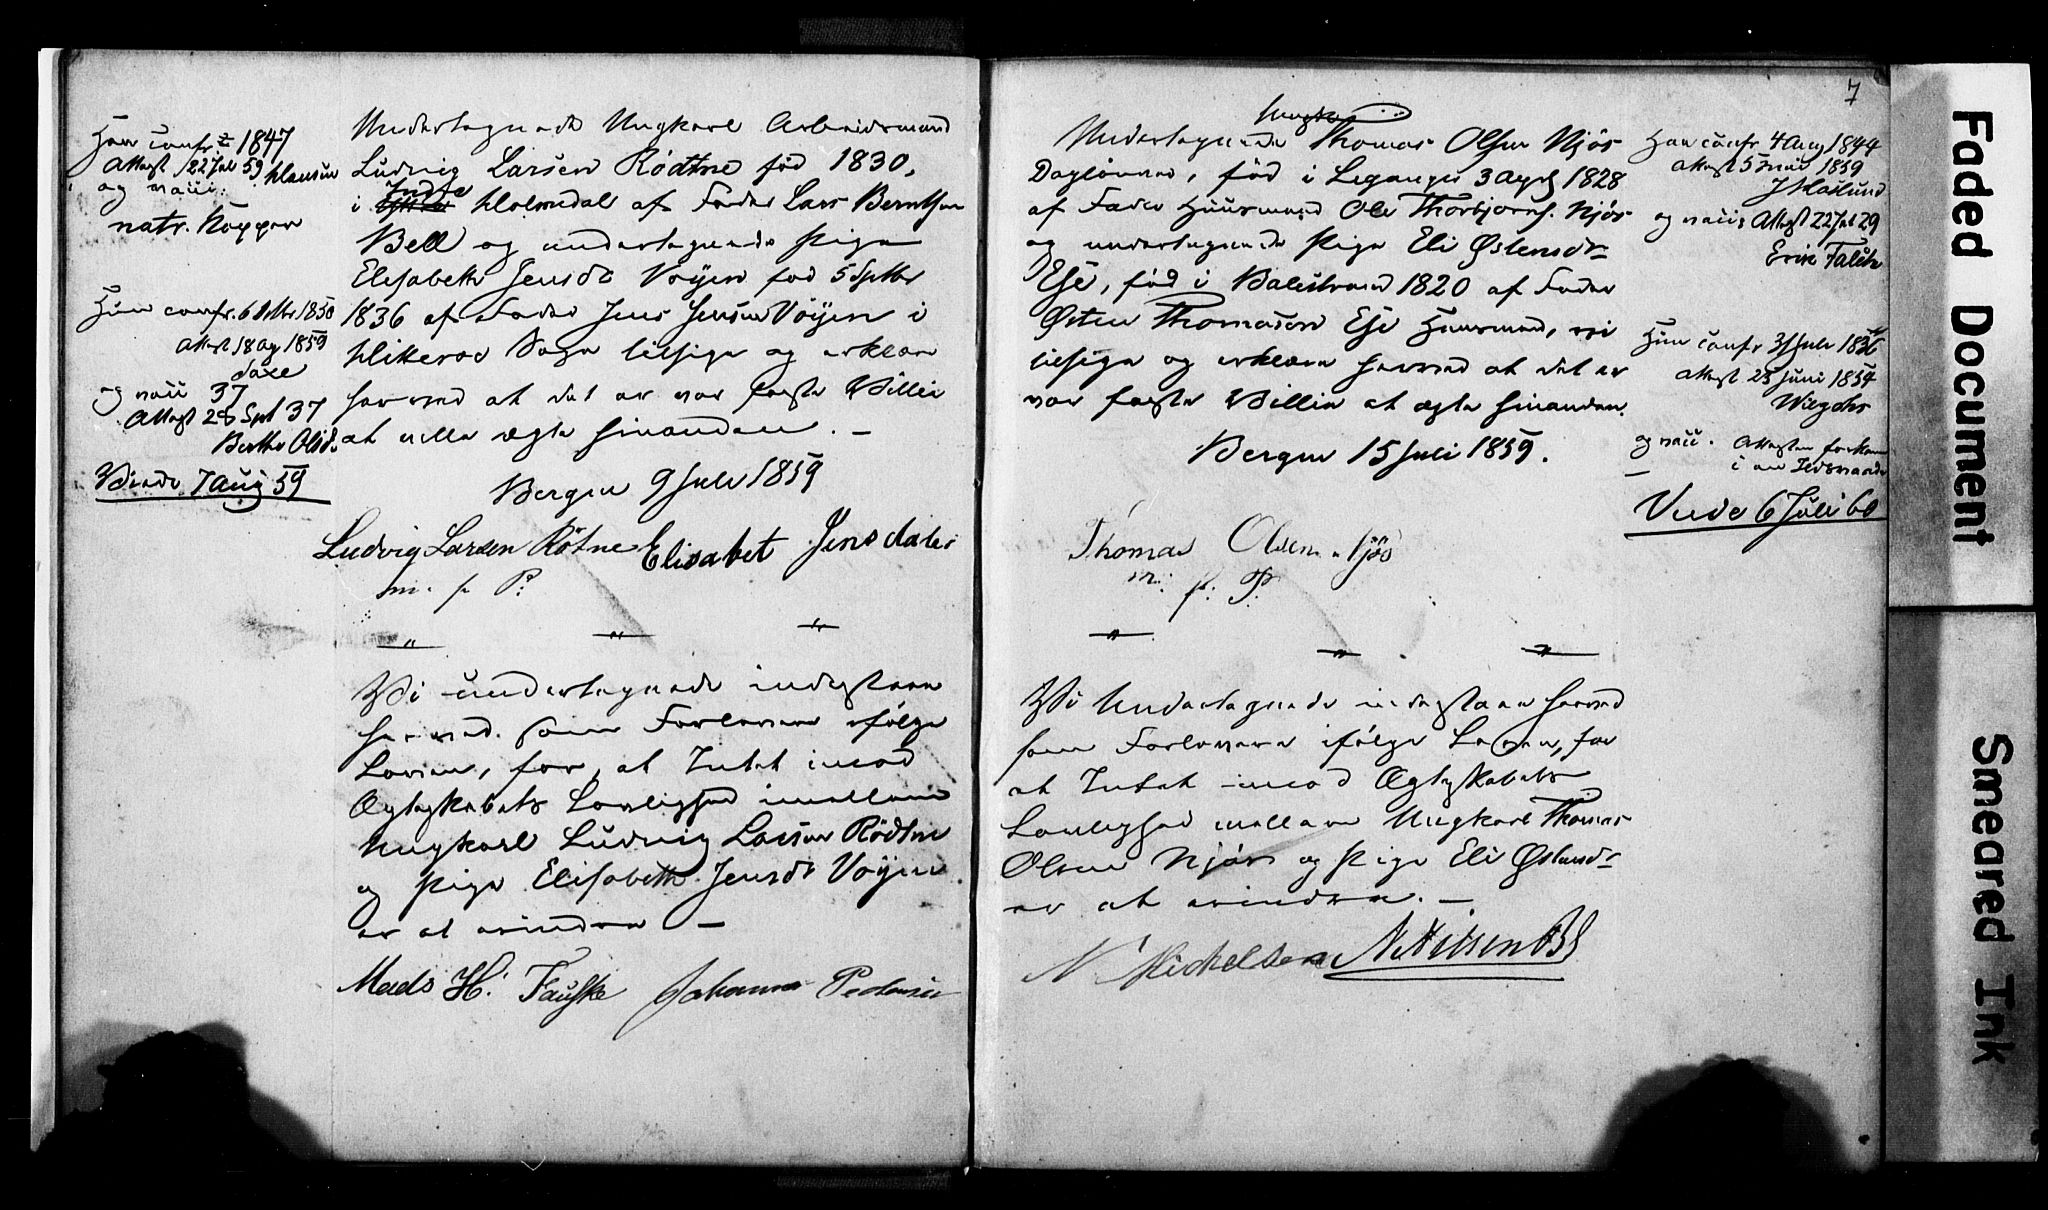 Han confr: 1847
Attest 22 Juli 59 Klausen
og vacc:
natr. Kopper
Hun confr. 6 Octbr 1850
Attest 18 Aug 1859
Saxe
og vacc 37
Attest 28 Spt 37
Berthe Olsd.
Viede 7 Aug 59
Undertegnede Ungkarl Arbeidsmand
Ludvig Larsen Rödtne föd 1830,
i Indre Holmedal af Fader Lars Berntsen
Bell og undertegnede Pige
Elisabeth Jensdr Vöyen föd 5 Sptbr
1836 af Fader Jens Jensen Vöyen i
Sogn tilsige og erklære
herved at det er vor faste Villie
at ville ægte hinanden. —
Bergen 9 Juli 1859
Ludvig Larsen Rötne Elisabet Jensdater
m. p. P.
" " "
Vi undertegnede indestaae
herved som Forlovere ifölge
Loven, for, at Intet imod
Ægteskabets Lovlighed imellem
Ungkarl Ludvig Larsen Rödtne
og Pige Elisabeth Jensdr Vöyen
er at erindre —
Mads H. Fauske Johannes Pedersen
7
Ungkarl
Undertegnede Thomas Olsen Njös
Daglönner, föd i Leganger 3 April 1828
af Fader Huusmand Ole Thorbjörns. Njös
og undertegnede Pige Eli Østensdr
Ese, föd i Balestrand 1820 af Fader
Østen Thomasson Ese Huusmand, vi
tilsige og erklære herved at det er
vor faste Villie at ægte hinanden.
Bergen 15 Juli 1859.
Thomas Olsen Njös
m: p: P.
" " "
Vi Undertegnede indestaae herved
som Forlovere ifölge Loven, for
at Intet imod Ægteskabets
Lovlighed mellem Ungkarl Thomas
Olsen Njös og Pige Eli Østensdr
er at erindre. —
N Mickelsen N. Nilsen
Han confr 4 Aug 1844
Attest 5 Mai 1859
J Haslund
og vacc Attest 22 Juli 29
Erik Falch
Hun confr 31 Juli 1836
Attest 25 Juni 1859
og vacc. Attesten forkommen
i en Ildsvaade
—
Viede 6 Juli 60
Faded Document
Smeared Ink